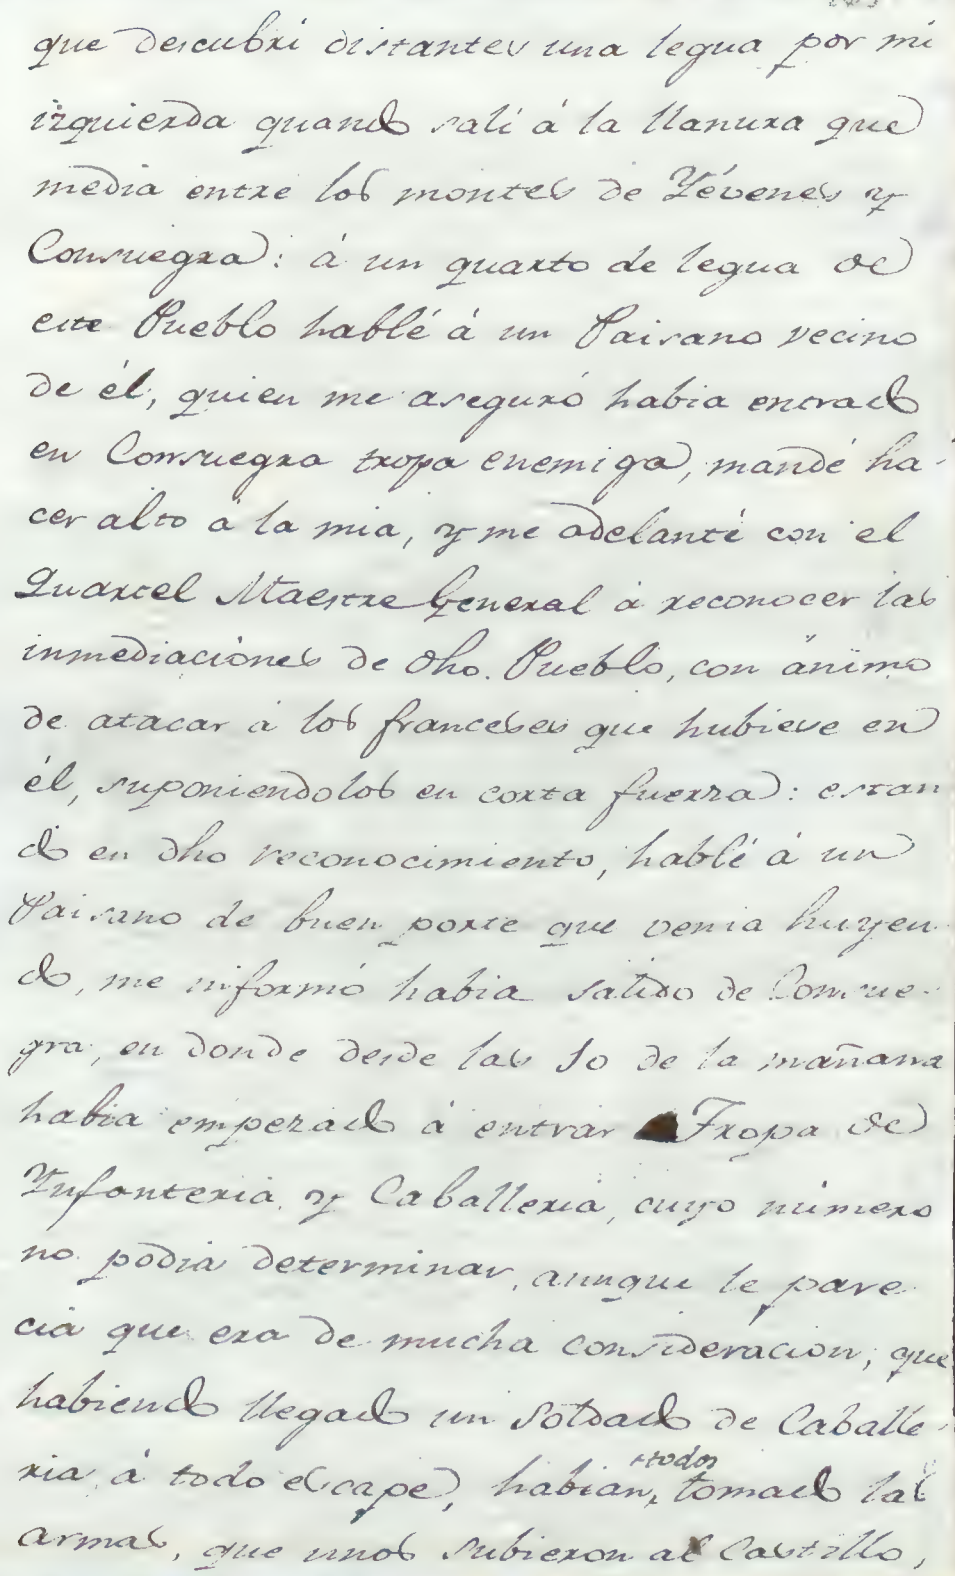 que descubrí distantes una legua por mi
izquierda quando salí á la llanura que
media entre los montes de Yévenes y
Consuegra: á un quarto de legua de
este Pueblo hablé á un Paisano vecino
de él, quien me aseguró habia entrado
en Consuegra tropa enemiga, mandé ha-
cer alto á la mia, y me adelanté con el
Quartel Maestre General á reconocer las
inmediaciones de dho. Pueblo, con ánimo
de atacar á los franceses que hubiese en
él, suponiendolos en corta fuerza: estan
do en dho reconocimiento, hablé á un
Paisano de buen porte que venia huyen-
do, me informó habia salido de Consue-
gra, en donde desde las 10 de la mañana
habia empezado á entrar Tropa de
Ynfanteria y Caballeria, cuyo número
no podia determinar, aunque le pare-
cia que era de mucha consideracion; que
habiendo llegado un Soldado de Caballe-
ria á todo escape, habian todos tomado las
armas, que unos subieron al Castillo,